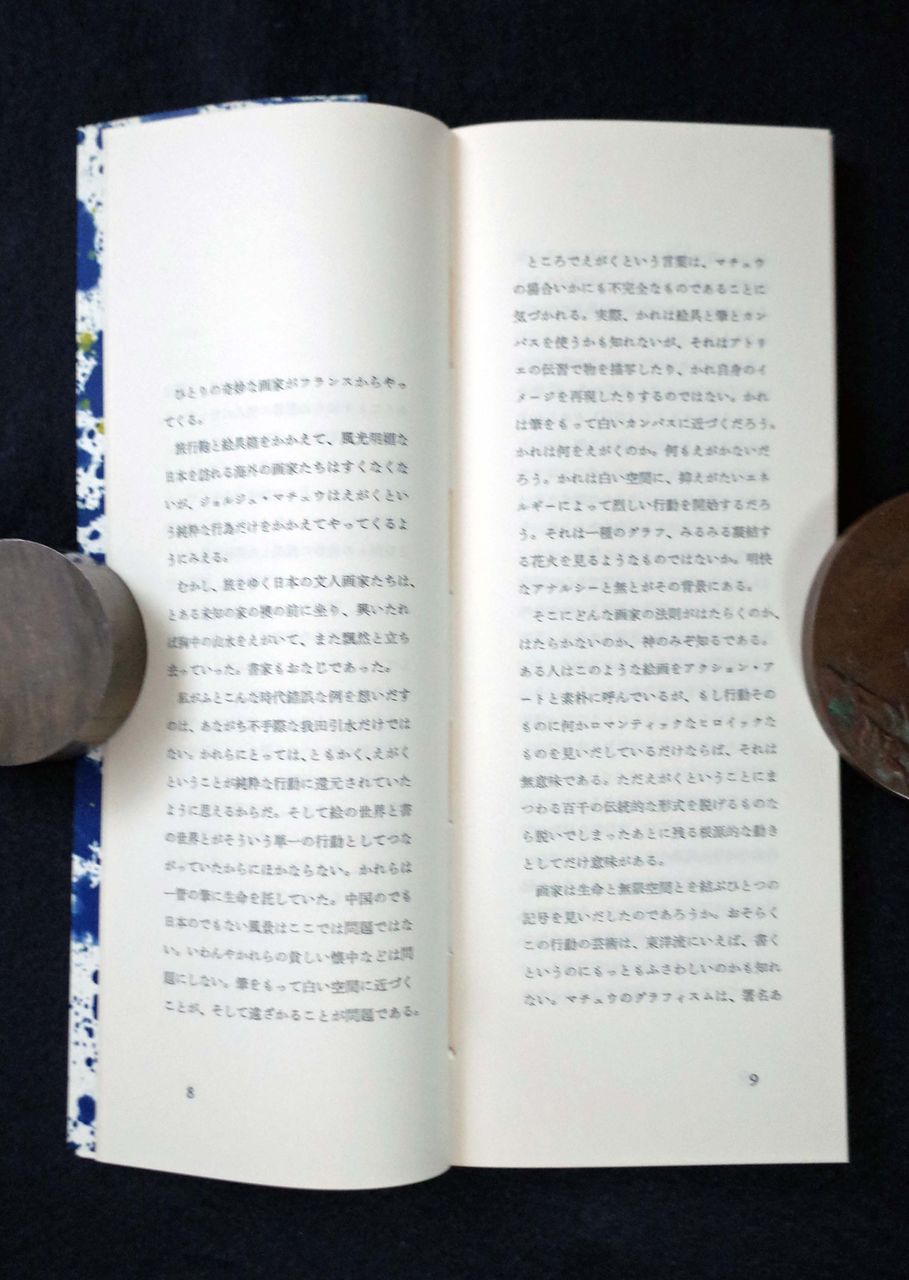 ひとりの奇妙な画家がフランスからやっ
てくる。
旅行鞄と絵具箱をかかえて、風光明媚な
日本を訪れる海外の画家たちはすくなくな
いが、ジョルジュ・マチュウはえがくとい
う純粋な行為だけをかかえてやってくるよ
うにみえる。
むかし、旅をゆく日本の文人画家たちは、
とある未知の家の襖の前に坐り、興いたれ
ば胸中の山水をえがいて、また飄然と立ち
去っていった。書家もおなじであった。
私がふとこんな時代錯誤な例を想いだす
のは、あながち不手際な我田引水だけでは
ない。かれらにとっては、ともかく、えがく
ということが純粋な行動に還元されていた
ように思えるからだ。そして絵の世界と書
の世界とがそういう単一の行動としてつな
がっていたからにほかならない。かれらは
一管の筆に生命を託していた。中国のでも
日本のでもない風景はここでは問題ではな
い。いわんやかれらの貧しい懐中などは問
題にしない。筆をもって白い空間に近づく
ことが、そして遠ざかることが問題である。
8
ところでえがくという言葉は、マチュウ
の場合いかにも不完全なものであることに
気づかれる。実際、かれは絵具と筆とカン
バスを使うかも知れないが、それはアトリ
エの伝習で物を描写したり、かれ自身のイ
メージを再現したりするのではない。かれ
は筆をもって白いカンバスに近づくだろう。
かれは何をえがくのか。何もえがかないだ
ろう。かれは白い空間に、抑えがたいエネ
ルギーによって烈しい行動を開始するだろ
う。それは一種のグラフ、みるみる凝結す
る花火を見るようなものではないか。明快
なアナルシーと無とがその背景にある。
そこにどんな画家の法則がはたらくのか、
はたらかないのか、神のみぞ知るである。
ある人はこのような絵画をアクション・ア
ートと素朴に呼んでいるが、もし行動その
ものに何かロマンティックなヒロイックな
ものを見いだしているだけならば、それは
無意味である。ただえがくということにま
つわる百千の伝統的な形式を脱げるものな
ら脱いでしまったあとに残る根源的な動き
としてだけ意味がある。
画家は生命と無限空間とを結ぶひとつの
記号を見いだしたのであろうか。おそらく
この行動の芸術は、東洋流にいえば、書く
というのにもっともふさわしいのかも知れ
ない。マチュウのグラフィスムは、署名あ
9